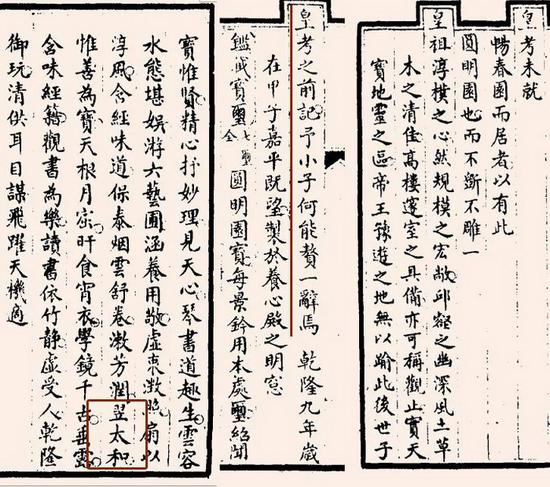 皇考未就
暢春園而居者以有此
圓明園也而不斲不雕一
皇祖淳樸之心然規模之宏敞邱壑之幽深風土草
木之清佳高樓邃室之具備亦可稱觀止實天
寶地靈之區帝王豫遊之地無以踰此後世子
皇考之前記予小子何能贅一辭焉 乾隆九年歲
在甲子嘉平既望製於養心殿之明窻
寶璽 圓明園寶每景鈐用本處璽紹聞
寶惟賢精心抒妙理見天心琴書道趣生雲容
水態堪娛游六藝圃涵養用敬虛裏澂照扇以
淳風含經味道保泰烟雲舒卷漱芳潤翌太和
惟善為寶天根月窟旰食宵衣學鏡千古垂露
含味經籍觀書為樂讀書依竹靜虛受人乾隆
御玩清供耳目謀飛躍天機適